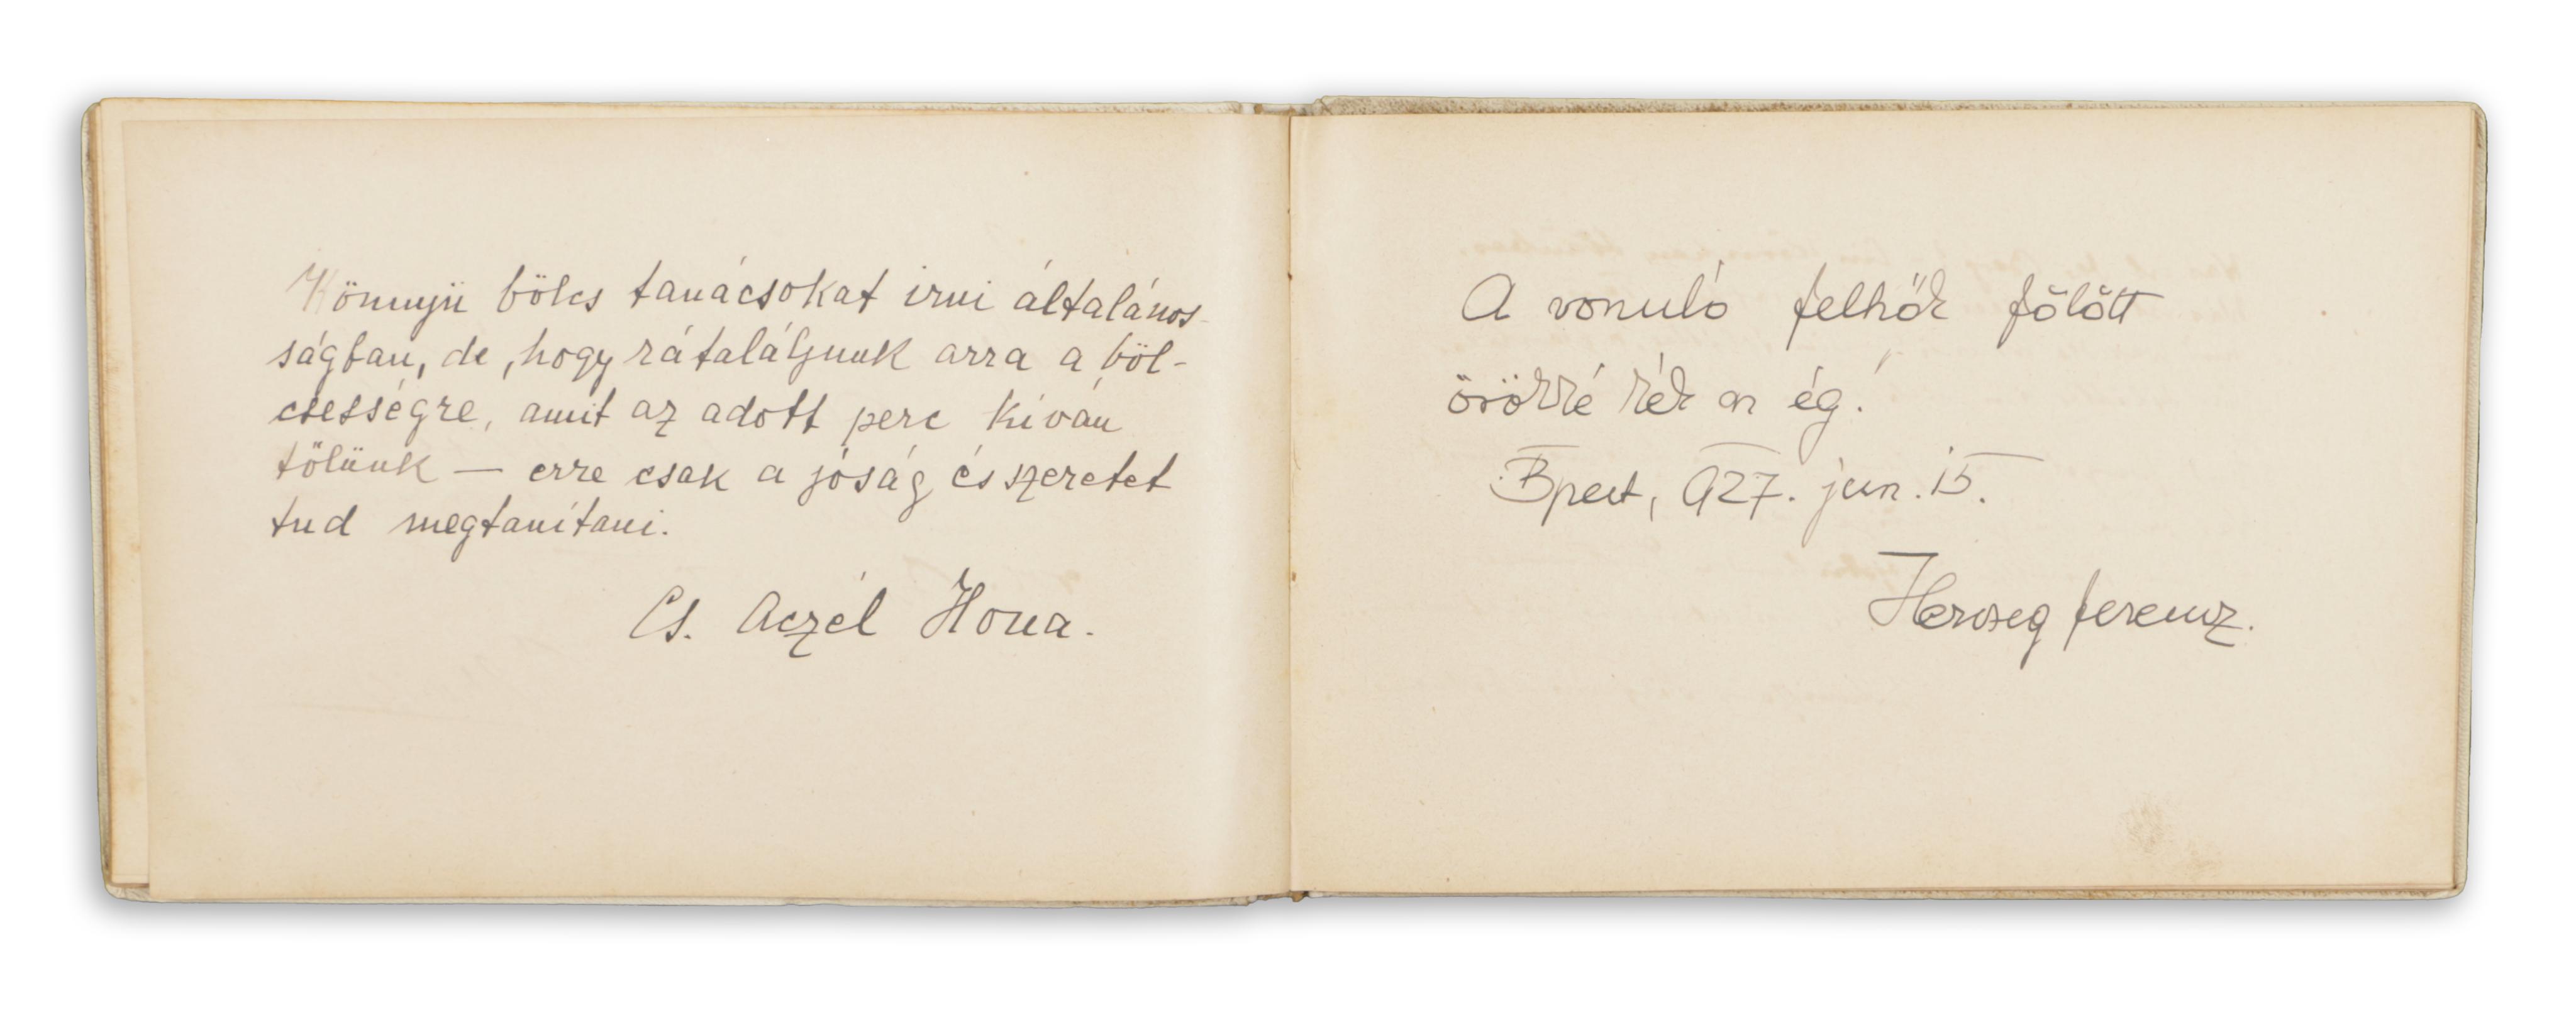 Könnyü bölcs tanácsokat irni általános-
ságban, de, hogy rátaláljunk arra a böl-
csességre, amit az adott perc kíván
tőlünk — erre csak a jóság és szeretet
tud megtanítani.
Cs. Aczél Ilona.
A vonuló felhők fölött
örökké kék az ég!
Bpest, 927. jun. 15.
Herczeg Ferencz.